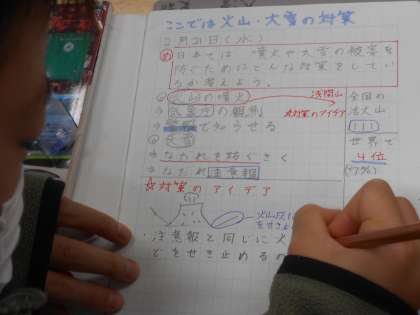 ここでは火山・大雪の対策
2月21日(水)
め 日本では、噴火や大雪の被害を
防ぐためにどんな対策をしてい
るか考えよう。
火山の噴火
浅間山
対策のアイデア
気象庁の観測
で知らせる
大雪
なだれを防ぐさく
なだれ注意報
☆対策のアイデア
火山灰
をせき止
・注意報と同じに火
どをせき止めるの
全国の
活火山
111
世界で
4位
(7%)